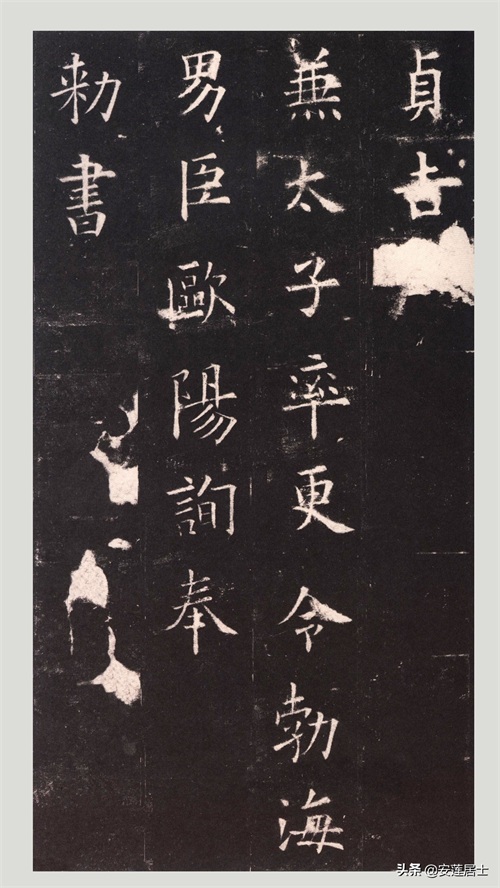 貞吉
兼太子率更令勃海
男臣歐陽詢奉
勑書
头条 @安莲居士